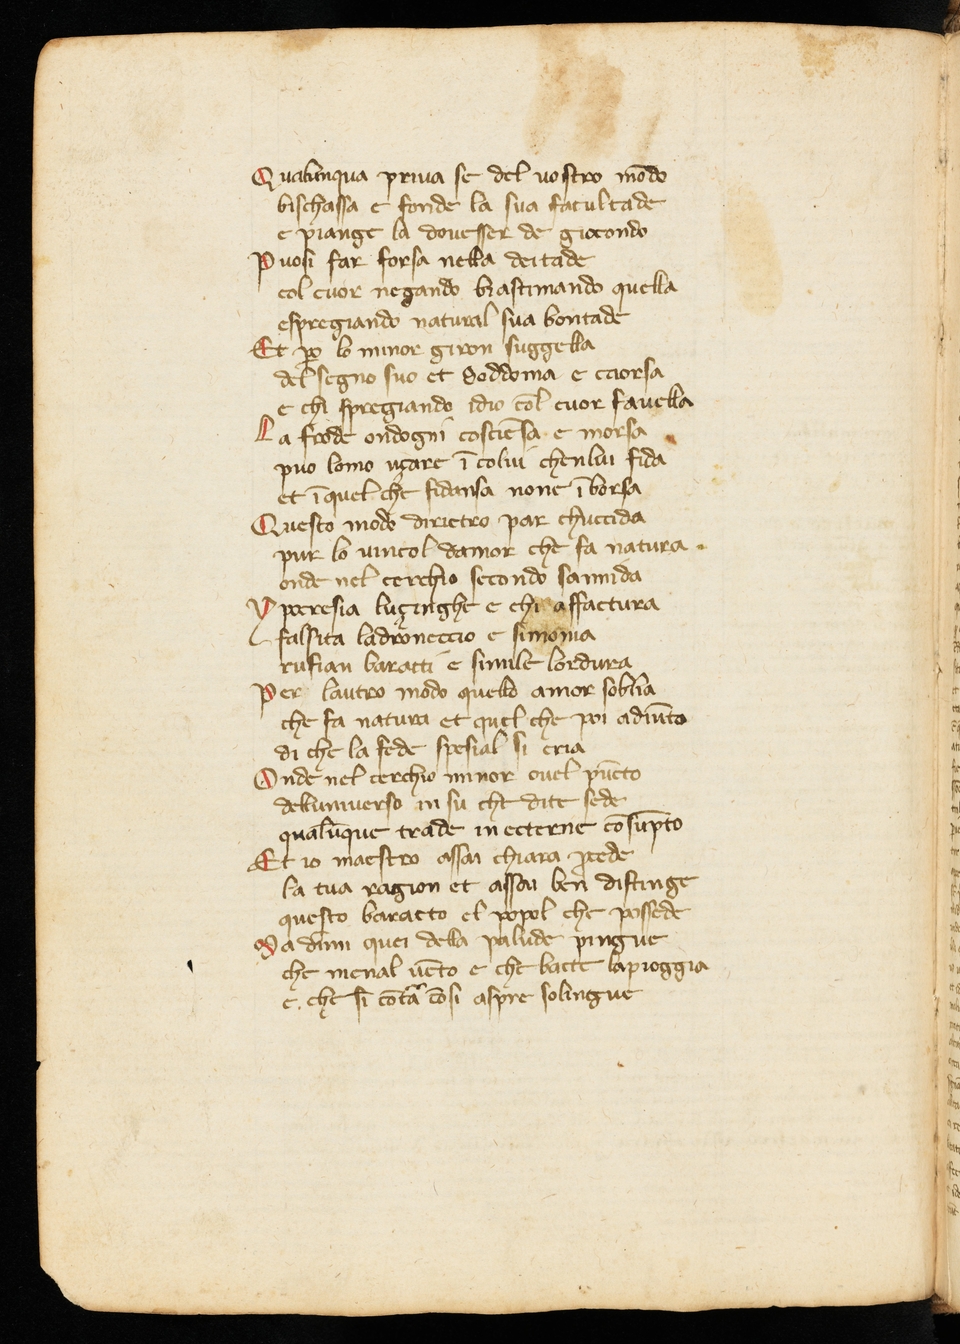 Qualunqua priua se del uostro mōdo
bischassa e fonde la sua facultade
e piange la douesser de giocondo
Puosi far forsa nella deitade
col cuor negando biastimando quella
espregiando natural sua bontade
Et po lo minor giron suggella
del segno suo et Soddoma e caorsa
e chi spregiando idio col cuor fauella
La frode ondogni cosciēsa e morsa
puo lomo uçare ī colui chenlui fida
et ī quel che fidansa none ī borsa
Questo modo dirietro par chuccida
pur lo uincol damor che fa natura
onde nel cerchio secondo sannida
Ypocresia luçinghe e chi affactura
falsita ladroneccio e simonia
rufian baratti e simile lordura
Per lautro modo quello amor soblia
che fa natura et quel che poi adiūto
di che la fede spesial si cria
Onde nel cerchio minor ouel pūcto
delluniuerso in su che dite sede
qualūque trade in ecterne cōsūpto
Et io maestro assai chiara pcede
la tua ragion et assai ben distinge
questo baracto el popol che possede
Ma dimi quei della palude pingue
che menal uēto e che batte lapioggia
e che si cōtā cōsi aspre solingue